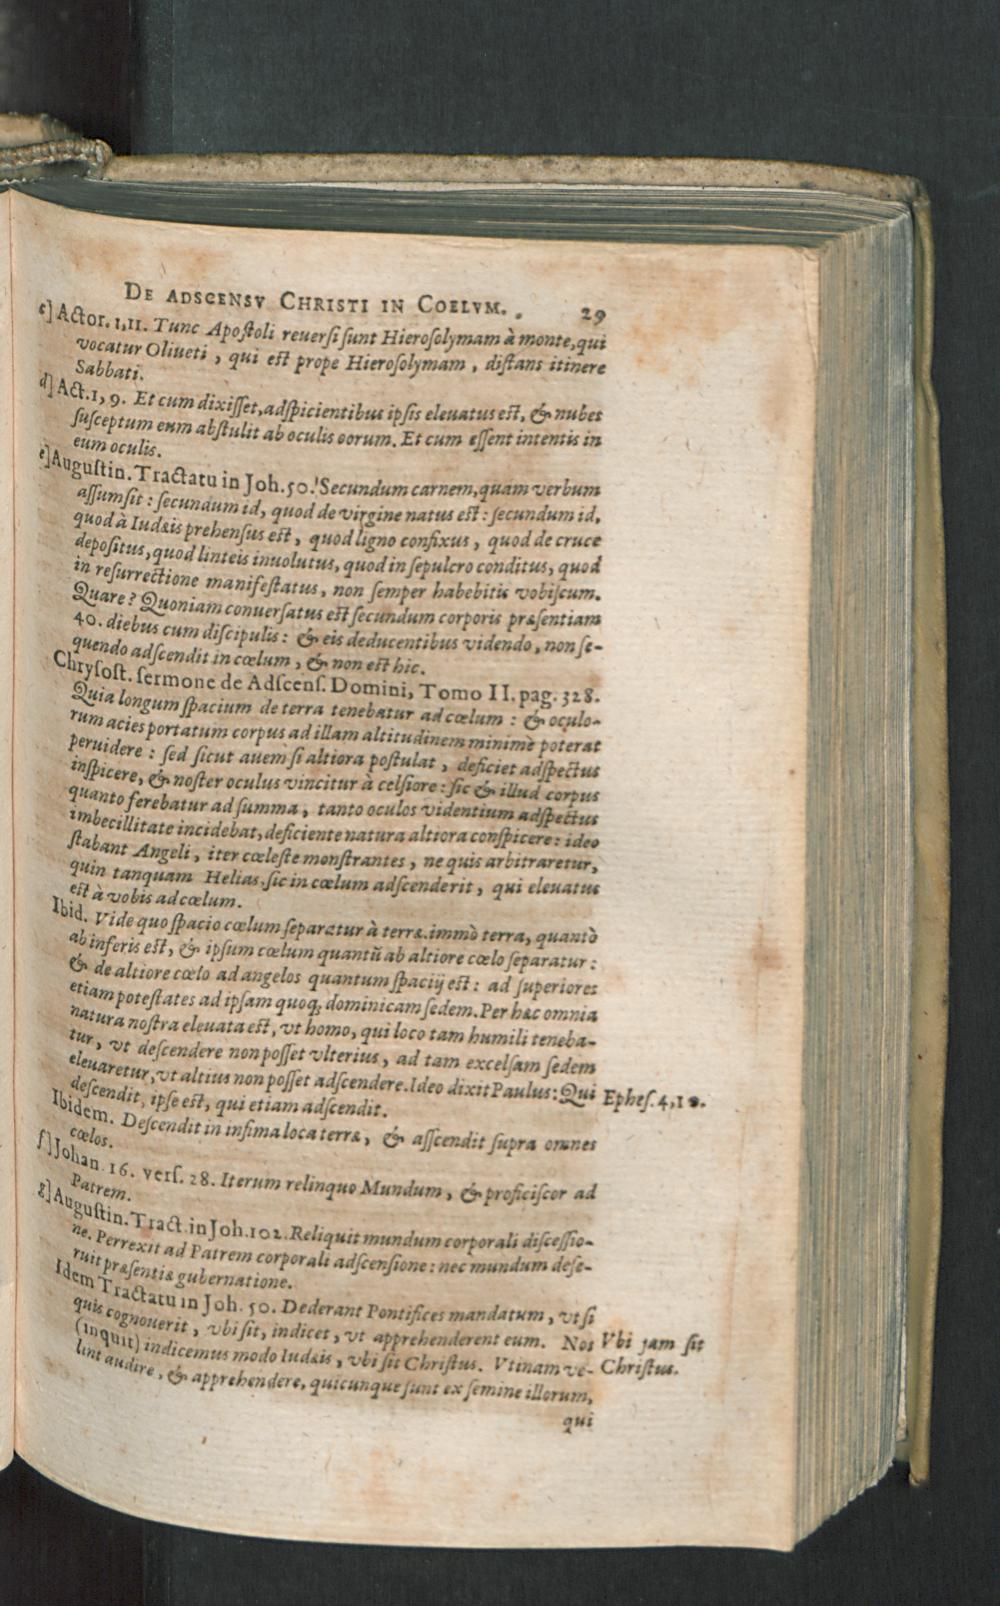 DE ADSCENSV CHRISTI IN COELVM. 29
c] Actor. 1,11. Tunc Apoſtoli reuerſi ſunt Hieroſolymam à monte, qui
vocatur Oliueti, qui eſt prope Hieroſolymam, diſtans itinere
Sabbati.
d] Act. 1, 9. Et cum dixiſſet, adſpicientibus ipſis eleuatus eſt, & nubes
ſuſceptum eum abſtulit ab oculis eorum. Et cum eſſent intentis in
eum oculis.
e] Auguſtin. Tractatu in Joh. 50. Secundum carnem, quam verbum
aſſumſit: ſecundum id, quod de virgine natus eſt: ſecundum id,
quod à Iudæis prehenſus eſt, quod ligno confixus, quod de cruce
depoſitus, quod linteis inuolutus, quod in ſepulcro conditus, quod
in reſurrectione manifeſtatus, non ſemper habebitis vobiſcum.
Quare? Quoniam conuerſatus eſt ſecundum corporis præſentiam
40. diebus cum diſcipulis: & eis deducentibus videndo, non ſe-
quendo adſcendit in cœlum, & non eſt hic.
Chryſoſt. ſermone de Adſcenſ. Domini, Tomo II. pag. 328.
Quia longum ſpacium de terra tenebatur ad cœlum: & oculo-
rum acies portatum corpus ad illam altitudinem minimè poterat
peruidere: ſed ſicut auem ſi altiora poſtulat, deficiet adſpectus
inſpicere, & noſter oculus vincitur à celſiore: ſic & illud corpus
quanto ferebatur ad ſumma, tanto oculos videntium adſpectus
imbecillitate incidebat, deficiente natura altiora conſpicere: ideo
ſtabant Angeli, iter cœleſte monſtrantes, ne quis arbitraretur,
quin tanquam Helias, ſic in cœlum adſcenderit, qui eleuatus
eſt à vobis ad cœlum.
Ibid. Vide quo ſpacio cœlum ſeparatur à terra. immò terra, quantò
ab inferis eſt, & ipſum cœlum quantũ ab altiore cœlo ſeparatur:
& de altiore cœlo ad angelos quantum ſpacij eſt: ad ſuperiores
etiam poteſtates ad ipſam quoq; dominicam ſedem. Per hæc omnia
natura noſtra eleuata eſt, vt homo, qui loco tam humili teneba-
tur, vt deſcendere non poſſet vlterius, ad tam excelſam ſedem
eleuaretur, vt altius non poſſet adſcendere. Ideo dixit Paulus: Qui Epheſ. 4, 10.
deſcendit, ipſe eſt, qui etiam adſcendit.
Ibidem. Deſcendit in infima loca terræ, & aſſcendit ſupra omnes
cœlos.
f] Johan. 16. verſ. 28. Iterum relinquo Mundum, & proficiſcor ad
Patrem.
g] Auguſtin. Tract. in Joh. 102. Reliquit mundum corporali diſceſſio-
ne. Perrexit ad Patrem corporali adſcenſione: nec mundum deſe-
ruit præſentiæ gubernatione.
Idem Tractatu in Joh. 50. Dederant Pontifices mandatum, vt ſi
quis cognouerit, vbi ſit, indicet, vt apprehenderent eum. Nos Vbi jam ſit
(inquit) indicemus modo Iudæis, vbi ſit Chriſtus. Vtinam ve- Chriſtus.
lint audire, & apprehendere, quicunque ſunt ex ſemine illorum,
qui